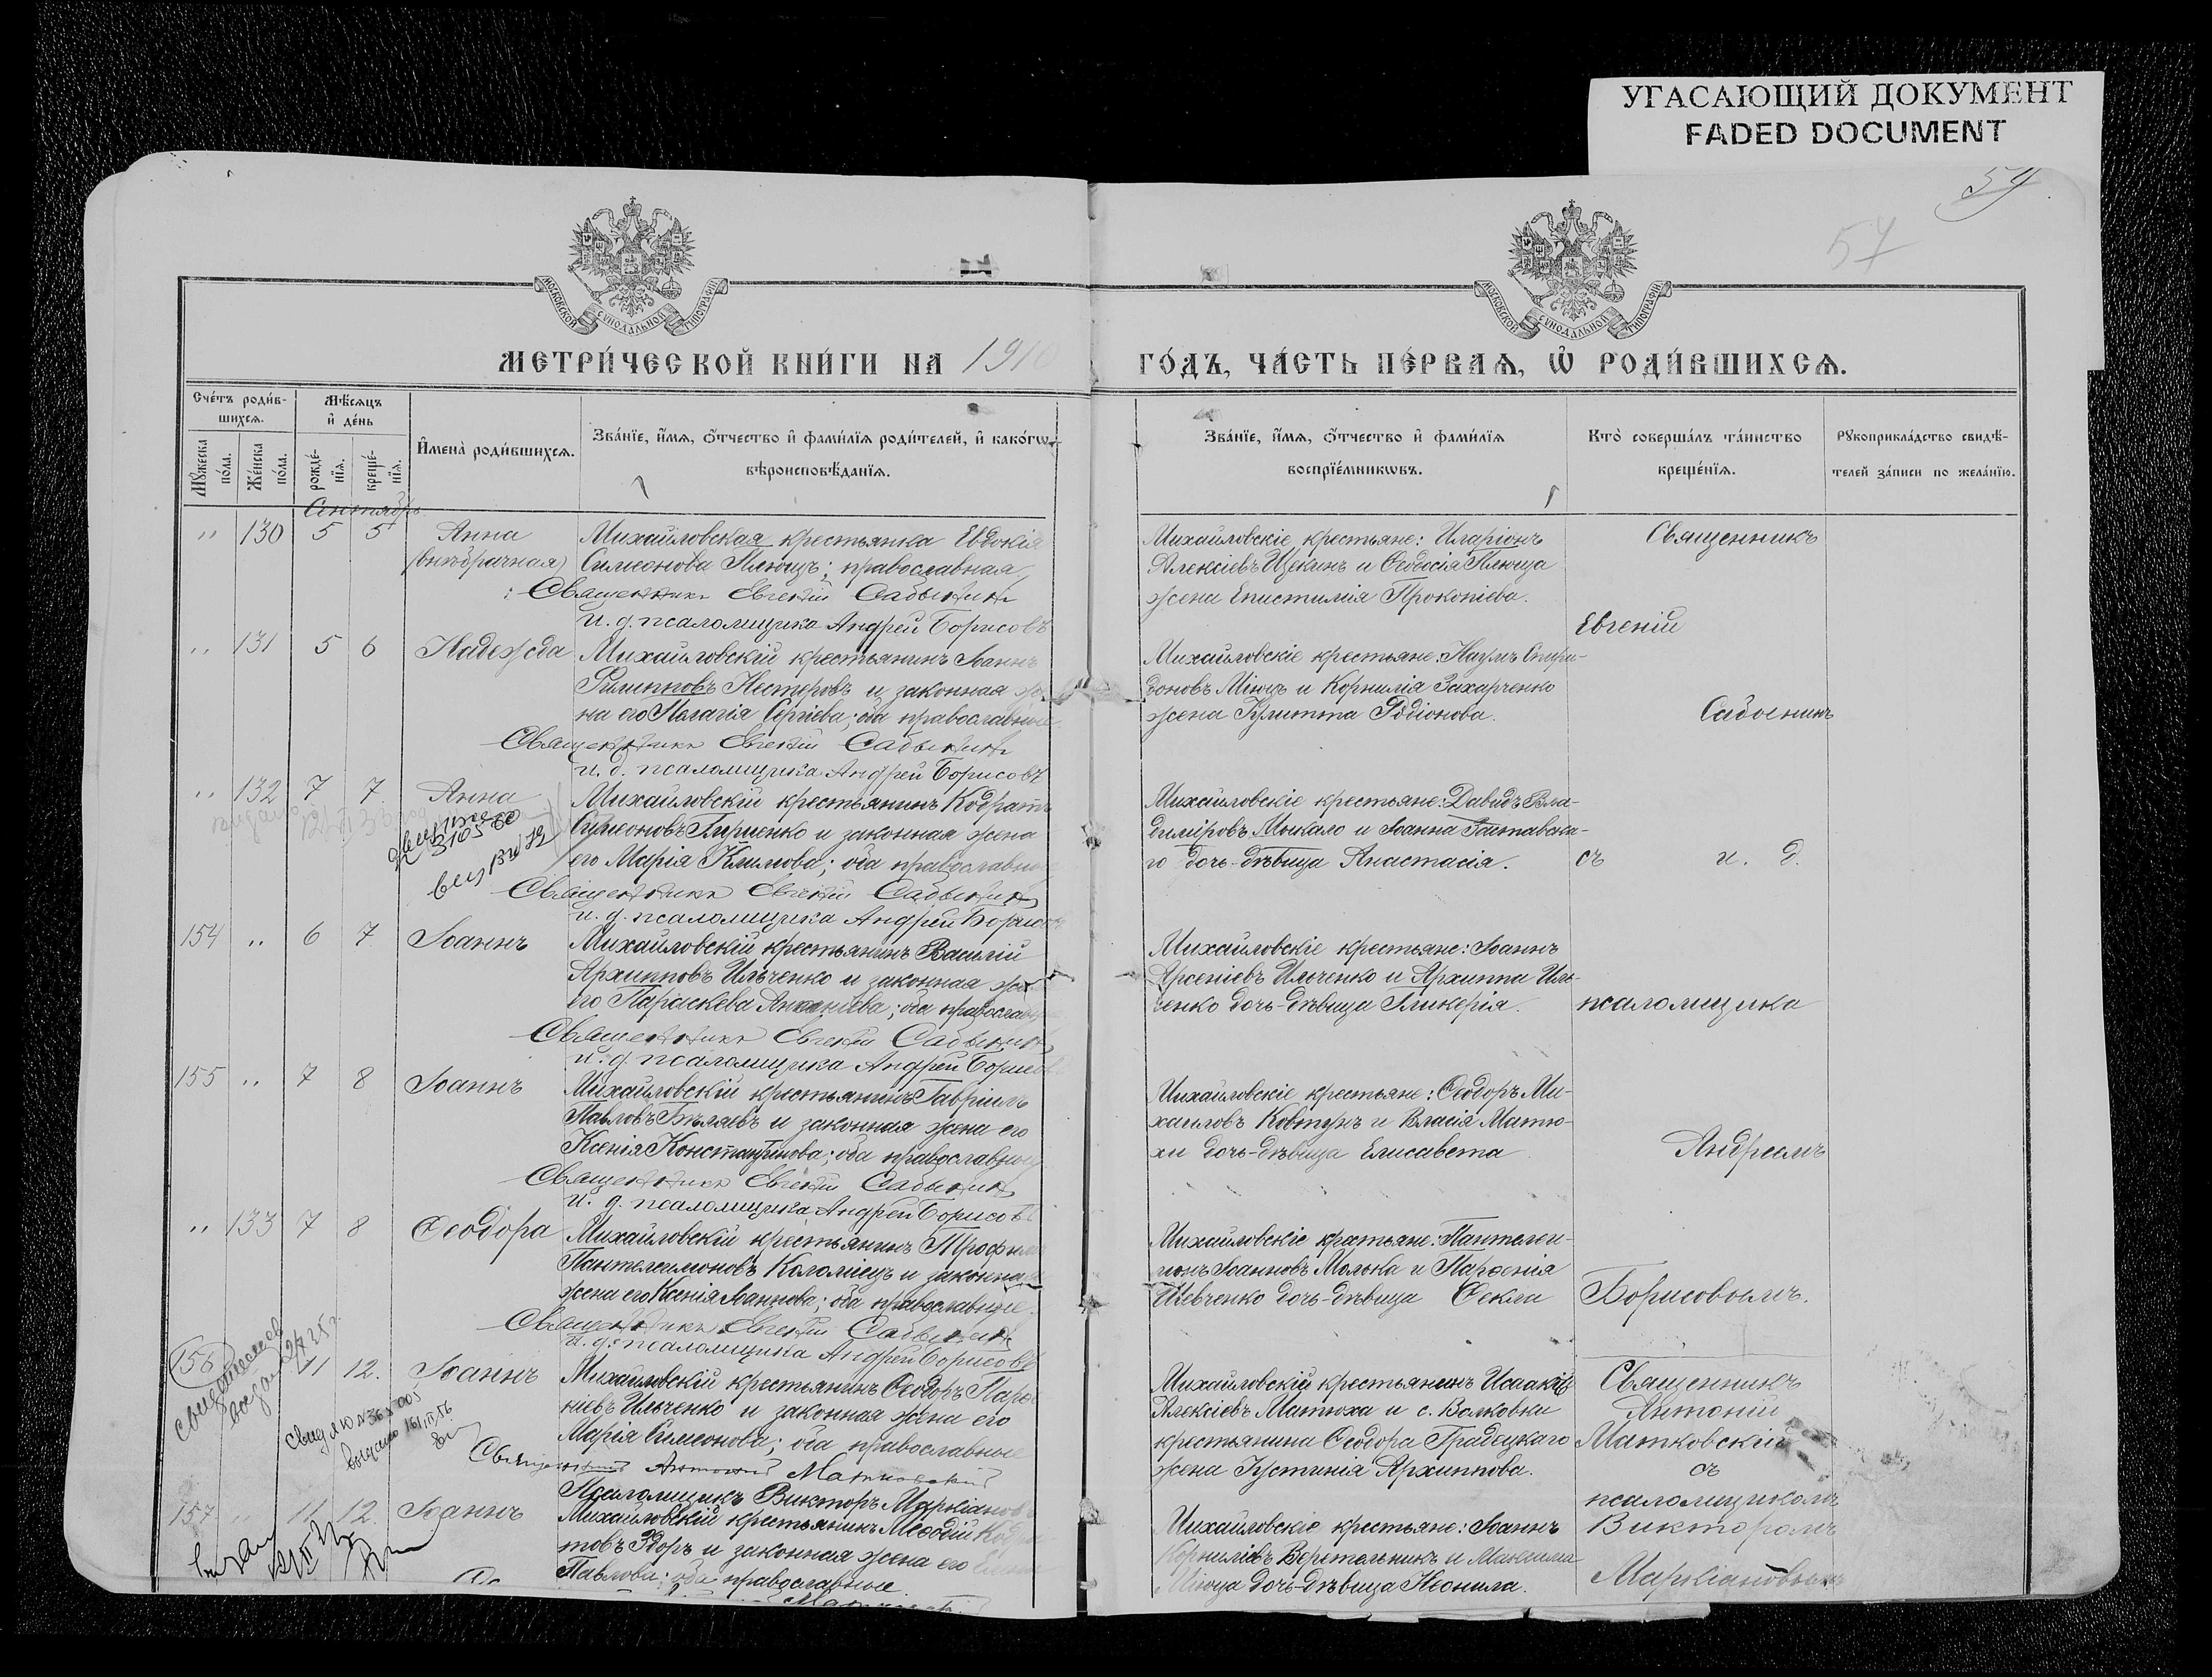 УГАСАЮЩИЙ ДОКУМЕНТ
FADED DOCUMENT
59
57
МОСКОВСКОЙ СѴНОДАЛЬНОЙ ТИПОГРАФІИ
МОСКОВСКОЙ СѴНОДАЛЬНОЙ ТИПОГРАФІИ
МЕТРИ́ЧЕСКОЙ КНИ́ГИ НА 191
ГО́ДЪ, ЧА́СТЬ ПЕ́РВАѦ, Ѡ҆ РОДИ́ВШИХСѦ.
Сче́тъ роди́в-
шихсѧ.
Мꙋ́жеска по́ла.
Же́нска по́ла.
Мѣ́сѧцъ
и҆ де́нь
рожде́-
нїѧ.
креще́-
нїѧ.
И҆мена̀ роди́вшихсѧ.
Зва́нїе, и҆́мѧ, ѻ҆́тчество и҆ фами́лїѧ роди́телей, и҆ како́гѡ
вѣроисповѣ́данїѧ.
Зва́нїе, и҆́мѧ, ѻ҆́тчество и҆ фами́лїѧ
воспрїе́мникѡвъ.
Кто̀ соверша́лъ та́инство
креще́нїѧ.
Рꙋкоприкла́дство свидѣ́-
телей за́писи по жела́нїю.
Сентябрь
" 130 5 5 Анна
(внѣбрачная)
Михайловская крестьянка Евдокія
Симеонова Плющъ; православная
Священникъ Евгеній Садовнинъ
и. д. псаломщика Андрей Борисовъ
Михайловскіе крестьяне: Иларіонъ
Алексіевъ Щекинъ и Ѳеодосія Плюща
жена Епистимія Прокопіева.
Священникъ
Евгеній
" 131 5 6 Надежда
Михайловскій крестьянинъ Іоаннъ
Филипповъ Нестеровъ и законная же
на его Пелагія Сергіева; оба православные
Священникъ Евгеній
и. д. псаломщика Андрей Борисовъ
Михайловскіе крестьяне: Наумъ Спири-
доновъ Міюцъ и Корнилія Захарченко
жена Іулитта Родіонова.
" 132 7 7 Анна
Михайловскій крестьянинъ Кодратъ
Сумеоновъ и законная жена
его Марія Климова; оба православные
Священникъ Евгеній
и. д. псаломщика Андрей Борисовъ
Михайловскіе крестьяне: Давидъ Вла-
диміровъ Мокало и Іоанна Заставска-
го дочь-дѣвица Анастасія.
съ и. д.
154 " 6 7 Іоаннъ
Михайловскій крестьянинъ Василій
Архипповъ Ильченко и законная жена
его Параскева; оба православные
Священникъ Евгеній
и. д. псаломщика Андрей Борисовъ
Михайловскіе крестьяне: Іоаннъ
Арсеніевъ Ильченко и Архиппа Иль-
ченко дочь-дѣвица Гликерія.
псаломщика
155 " 7 8 Іоаннъ
Михайловскій крестьянинъ Гавріилъ
Павловъ Бѣляевъ и законная жена его
Ксенія Константинова; оба православные
Священникъ Евгеній
и. д. псаломщика Андрей Борисовъ
Михайловскіе крестьяне: Ѳеодоръ Ми-
хаиловъ Ковтунъ и Власія Матю-
хи дочь-дѣвица Елисавета
Андреемъ
" 133 7 8 Ѳеодора
Михайловскій крестьянинъ Трофимъ
Пантелеимоновъ Коломіецъ и законная
жена его Ксенія Іоаннова; оба православные.
Священникъ Евгеній
и. д. псаломщика Андрей Борисовъ
Михайловскіе крестьяне: Пантелеи-
монъ Іоанновъ Молька и Парѳенія
Шевченко дочь-дѣвица Ѳекла
Борисовымъ.
156 11 12. Іоаннъ
Михайловскій крестьянинъ Ѳеодоръ Парѳе
ніевъ Ильченко и законная жена его
Марія Симеонова; оба православные
Священникъ Антоній Матковскій
Псаломщикъ Викторъ Маркіановъ
Михайловскій крестьянинъ Исаакій
Алексіевъ Матюха и с. Волковки
крестьянина Ѳеодора Градецкаго
жена Іустинія Архиппова.
Священникъ
Антоній
Матковскій
съ
псаломщикомъ
Викторомъ
Маркіановымъ
157 " 11 12. Іоаннъ
Михайловскій крестьянинъ Меѳодій
товъ Здоръ и законная жена его
Павлова; оба православные.
Михайловскіе крестьяне: Іоаннъ
Корниліевъ Веретельникъ и Максима
Міюца дочь-дѣвица Неонила.